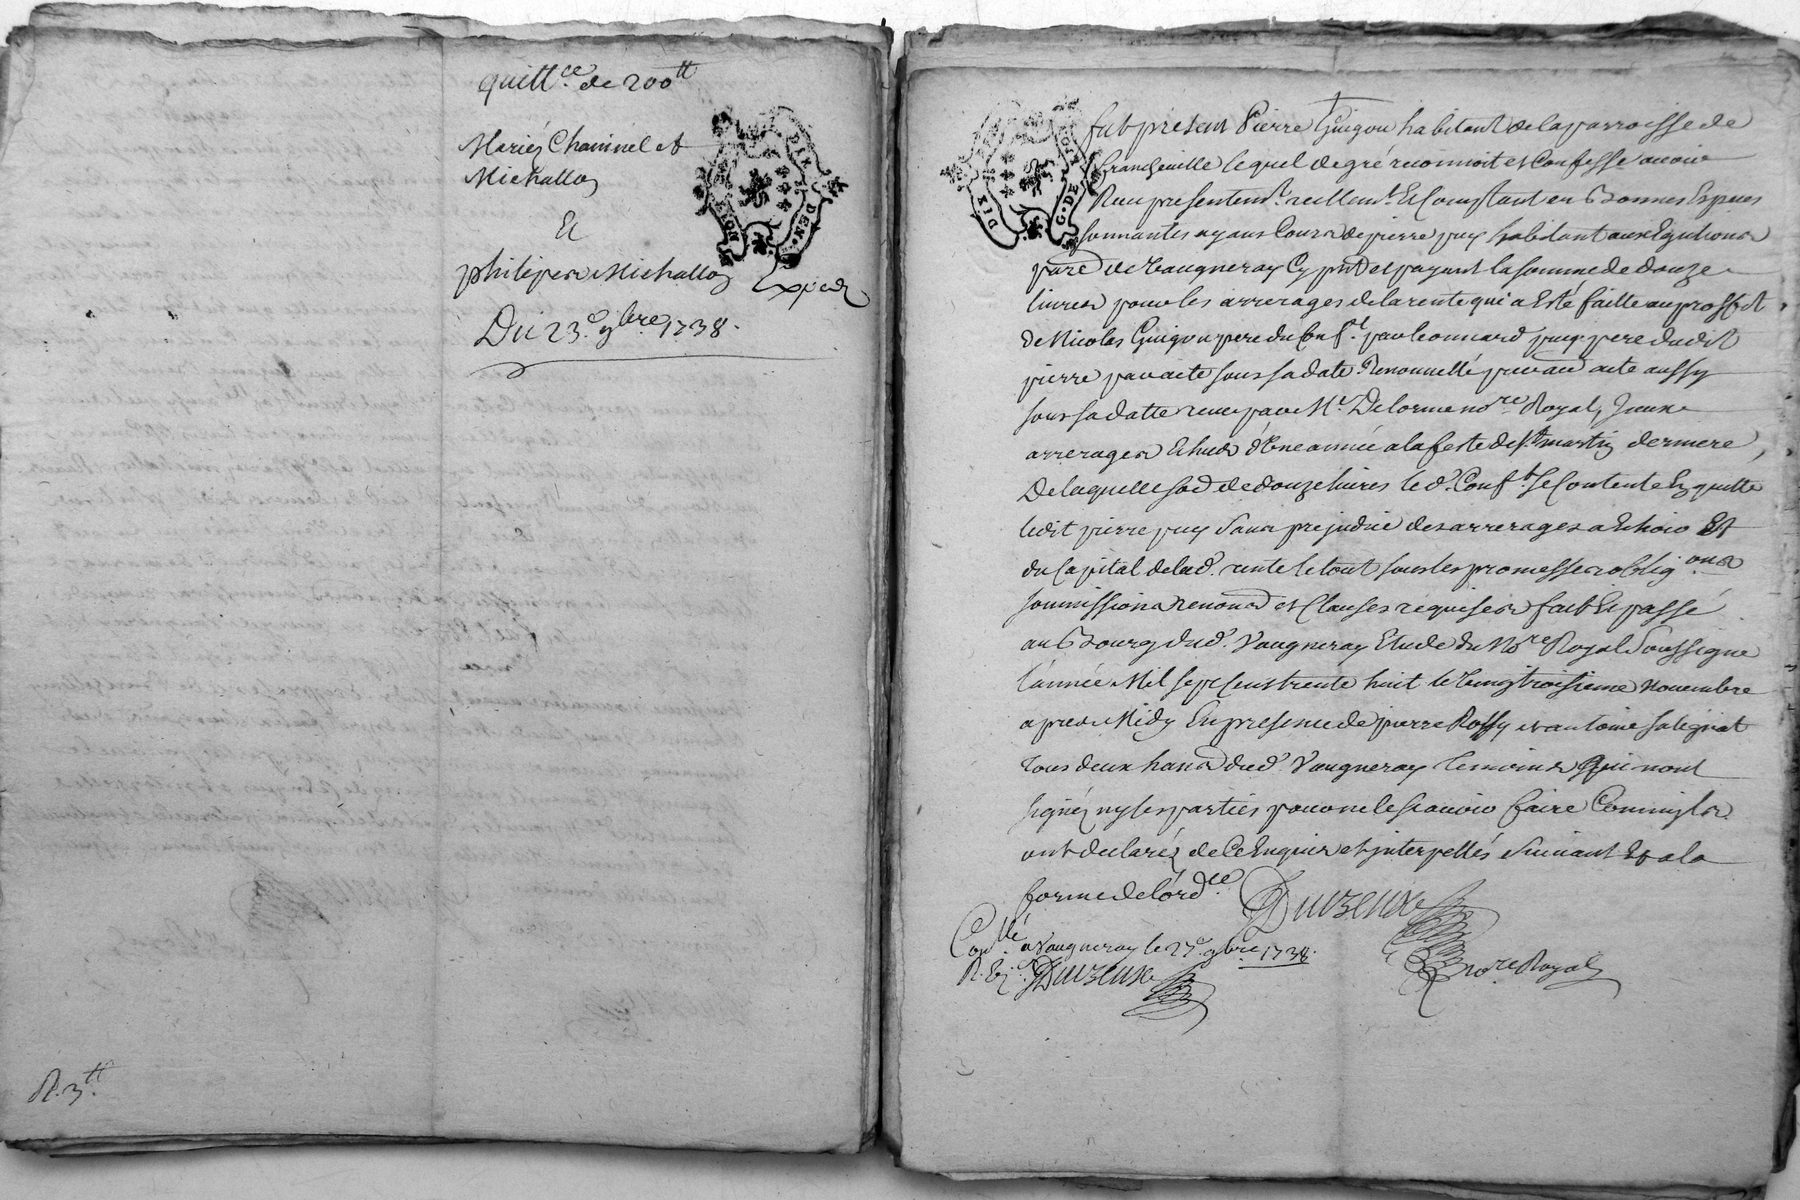 quitt.ce de 200tt
Mariés Chainnel et
Michallon
Et
philipes Michallon
Expedr
Du 23.e 9bre 1738.
R. 3tt.
DIX
DEN.
fut present Pierre Guigou habitant de la parroisse de
Grandzeuille lequel de gré reconnoit et Confesse auoir
Receu presentem.t reellem.t Et Comptant en Bonnes Especes
sonnantes ayans Cours de pierre puy habitant aux Eguitions
parr. de Vaugneray Cy pnt et payant la somme de douze
liures pour les arrerages de la rente qui a Esté faitte au proffit
de Nicolas Guigou pere du Conf.t par Leonnard puy pere dudit
pierre par acte sous sa date Renouuellé par au acte aussy
sous sa datte receu par Me Delorme nore Royal, Jceux
arrerages Echeus d'Vne année a la feste de St martin derniere,
De laquelle sod de douze liures le d. Conf.t se Contente En quitte
ledit pierre puy Sans prejudice des arrerages a Echoir Et
du Capital de lad. rente le tout sous les promesses obligons
soumissions renond et Clauses requises fait Et passé
au Bourg dud. Vaugneray Etude du Nore Royal Soussigne
l'année Mil sept Cens trente huit le Vingt troisieme nouembre
apres Midy En presence de pierre Rossy et antoine salignat
tous deux hans dud. Vaugneray temoins Qui n'ont
signéz ny les parties pour ne le sçauoir faire Comm'ils
ont declaréz de Ce Enquis et interpellés suiuant Et a la
forme de l'ordce
Duvzeux
nore Royal
Conllé a Vaugneray le 27.e 9bre 1738.
R. Duvzeux